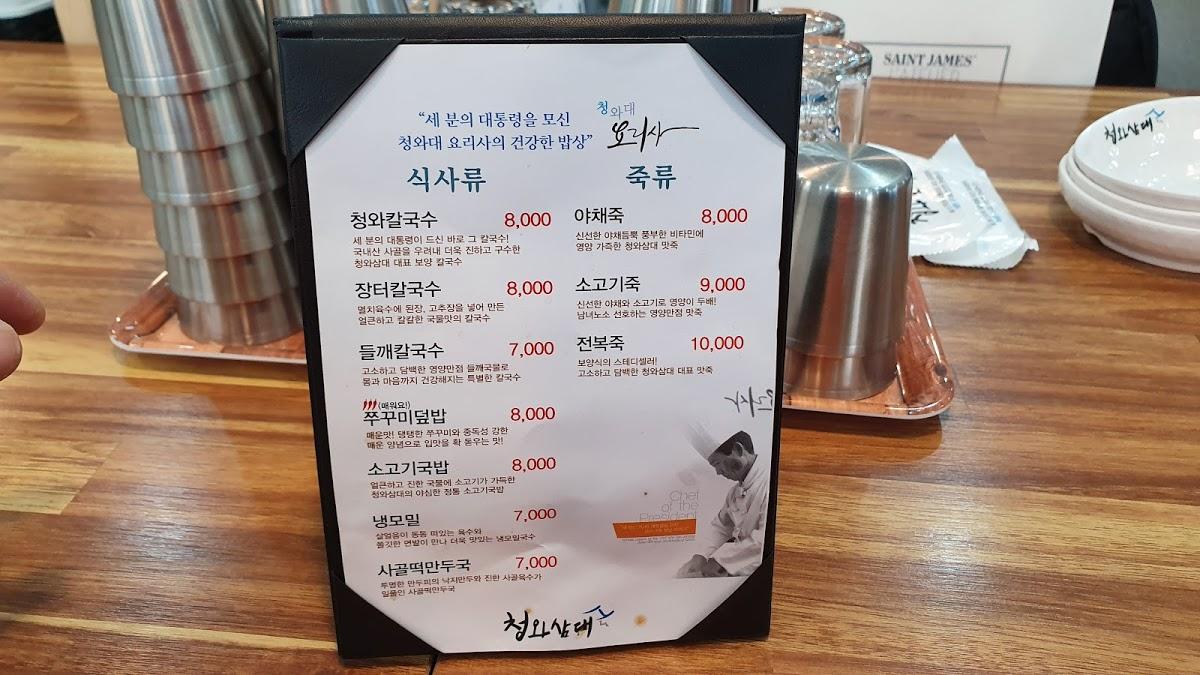 SAINT JAMES
"세 분의 대통령을 모신
청와대 요리사의 건강한 밥상"
청와대
요리사
식사류
청와칼국수 8,000
세 분의 대통령이 드신 바로 그 칼국수!
국내산 사골을 우려내 더욱 진하고 구수한
청와삼대 대표 보양 칼국수
장터칼국수 8,000
멸치육수에 된장, 고추장을 넣어 만든
얼큰하고 칼칼한 국물맛의 칼국수
들깨칼국수 7,000
고소하고 담백한 영양만점 들깨국물로
몸과 마음까지 건강해지는 특별한 칼국수
(매워요!)
쭈꾸미덮밥 8,000
매운맛! 탱탱한 쭈꾸미와 중독성 강한
매운 양념으로 입맛을 확 돋우는 맛!
소고기국밥 8,000
얼큰하고 진한 국물에 소고기가 가득한
청와삼대의 야심한 정통 소고기국밥
냉모밀 7,000
살얼음이 동동 떠있는 육수와
쫄깃한 면발이 만나 더욱 맛있는 냉모밀국수
사골떡만두국 7,000
투명한 만두피의 낙지만두와 진한 사골육수가
일품인 사골떡만두국
죽류
야채죽 8,000
신선한 야채듬뿍 풍부한 비타민에
영양 가득한 청와삼대 맛죽
소고기죽 9,000
신선한 야채와 소고기로 영양이 두배!
남녀노소 선호하는 영양만점 맛죽
전복죽 10,000
보양식의 스테디셀러!
고소하고 담백한 청와삼대 대표 맛죽
Chef
of the
President
청와삼대
청와삼대